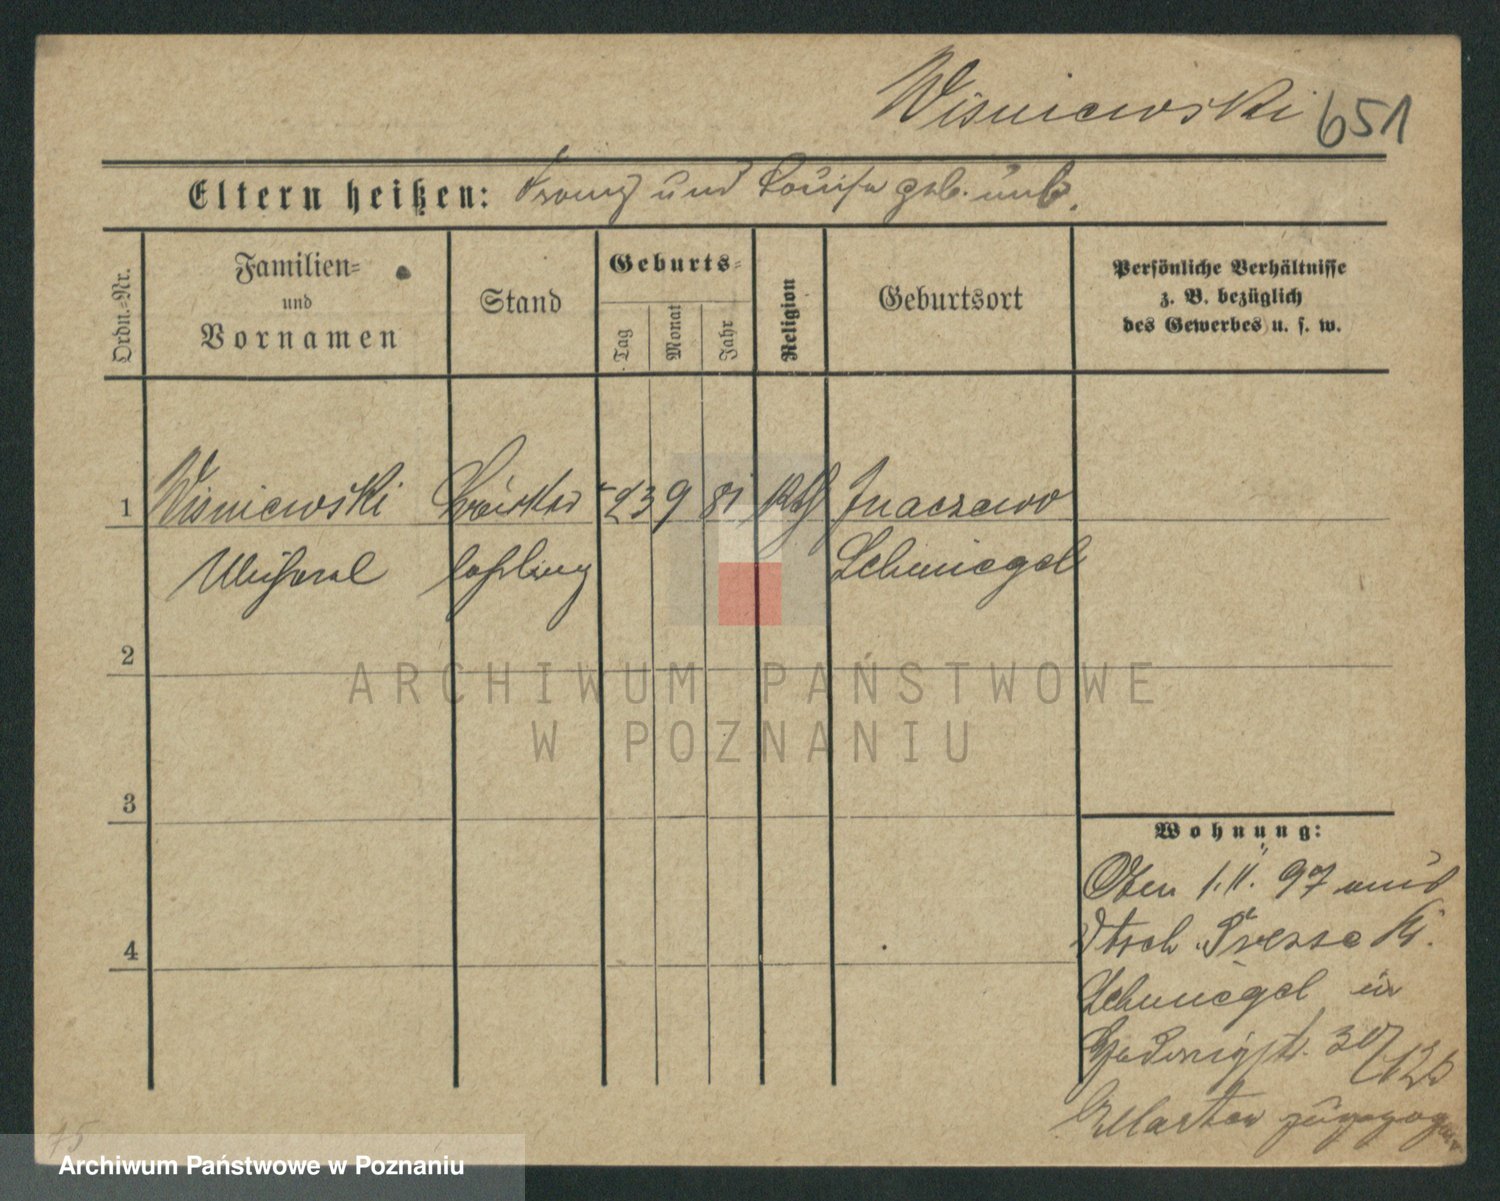 Wisniewski 651
Eltern heißen: Franz und Louise geb. unb.
Ordn.=Nr.
Familien=
und
Vornamen
Stand
Geburts=
Tag
Monat
Jahr
Religion
Geburtsort
Persönliche Verhältnisse
z. B. bezüglich
des Gewerbes u. s. w.
1 Wisniewski 23 9 81 Kth Jnaczewo
Schmiegel
2
3
4
Wohnung:
Den 1.11. 97 aus
Dtsch. Presse Kr.
Schmiegel in
30/12b
zugezogen
ARCHIWUM PAŃSTWOWE
W POZNANIU
Archiwum Państwowe w Poznaniu